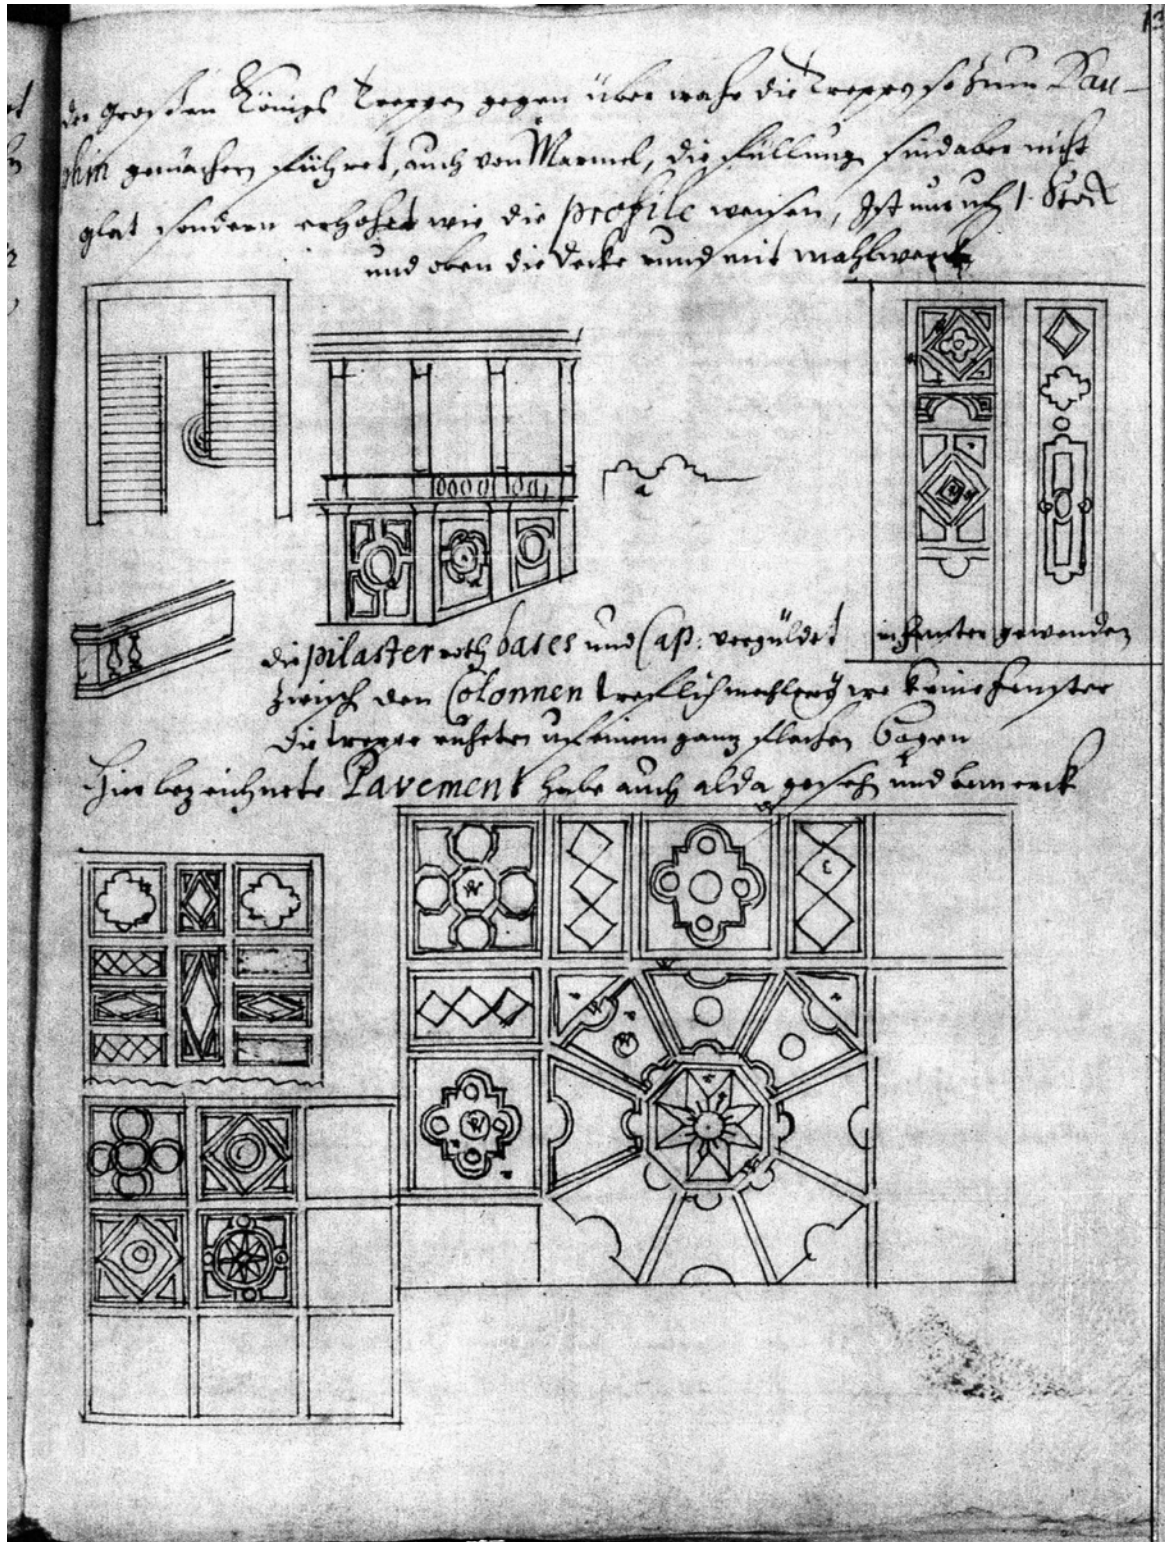 der großen Königs Treppen gegen über wahr die Treppe so zum Dau-
phin gemächern führet, auch von Marmel, die füllung sind aber nicht
glat sondern erhohet wie die profile weisen, Ist nur uf 1. Stock
und oben die decke rund mit mahlwerck
a
die pilaster roth bases und Cap: vergüldet
in fenster gewenden
zwisch den Colonnen trefflich mahlerey wo keine fenster
die treppe ruheten uf einem ganz flachen bogen
Hier bezeichnete Pavement habe auch alda gesehn und bemerck